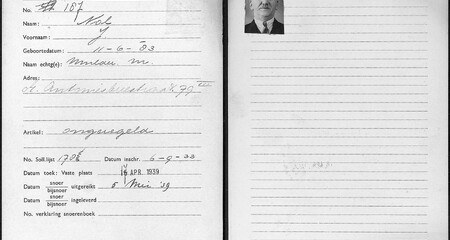 No. 187
Naam: Nol
Voornaam: J
Geboortedatum: 11-6-33
Naam echtg(e): Mulder M.
Adres:
79
Artikel: ongeregeld
No. Soll.lijst Datum inschr. 6-9-33
Datum toek: Vaste plaats APR. 1939
Datum snoer/bijsnoer uitgereikt 5 Mei '39
Datum snoer/bijsnoer ingeleverd
No. verklaring snoerenboek